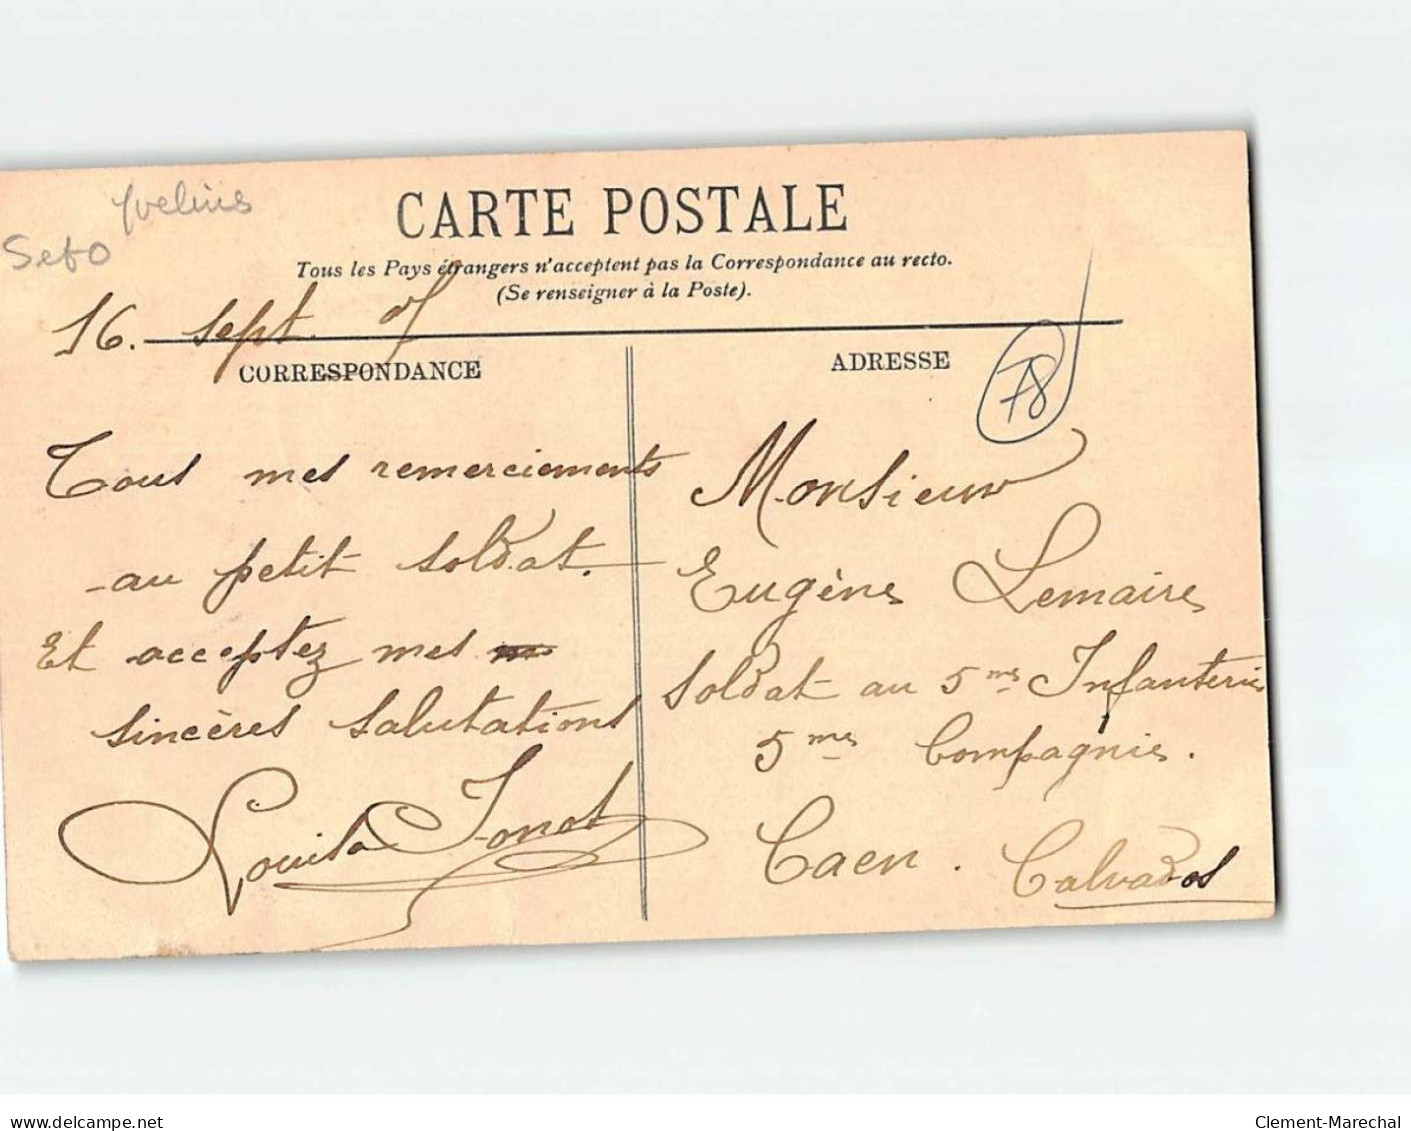 Yvelines
CARTE POSTALE
Tous les Pays étrangers n'acceptent pas la Correspondance au recto.
(Se renseigner à la Poste).
16. sept.
CORRESPONDANCE
Tous mes remerciements
au petit soldat.
Et acceptez mes
sincères salutations
Louisa
ADRESSE
78
Monsieur
Eugène Lemaire
soldat au 5me Infanterie
5me Compagnie.
Caen. Calvados
delcampe.net
Clement-Marechal